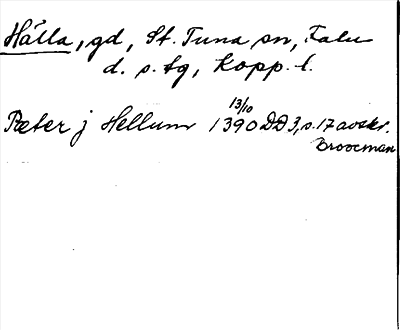 Hälla, gd, St. Tuna sn, Falu
d. s. tg, Kopp. l.
13/10
Peter j Hellum 1390 DD3, s. 17 avskr.
Broocman